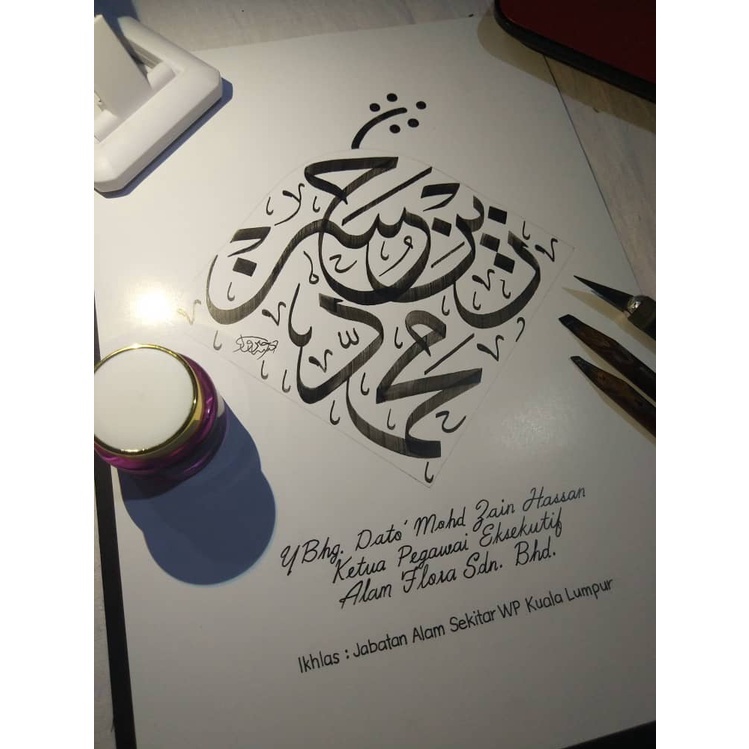 محمّد زين حسن
YBhg. Dato' Mohd Zain Hassan
Ketua Pegawai Eksekutif
Alam Flora Sdn. Bhd.
Ikhlas : Jabatan Alam Sekitar WP Kuala Lumpur